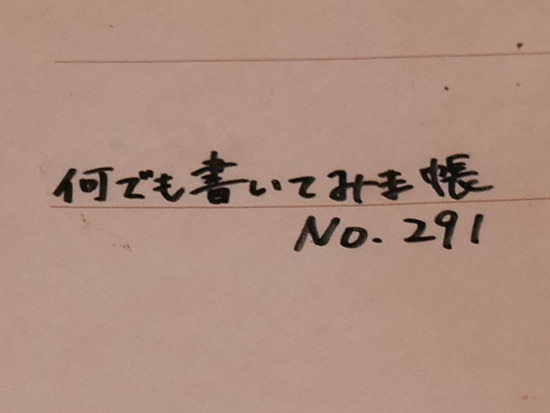 何でも書いてみま帳
No. 291